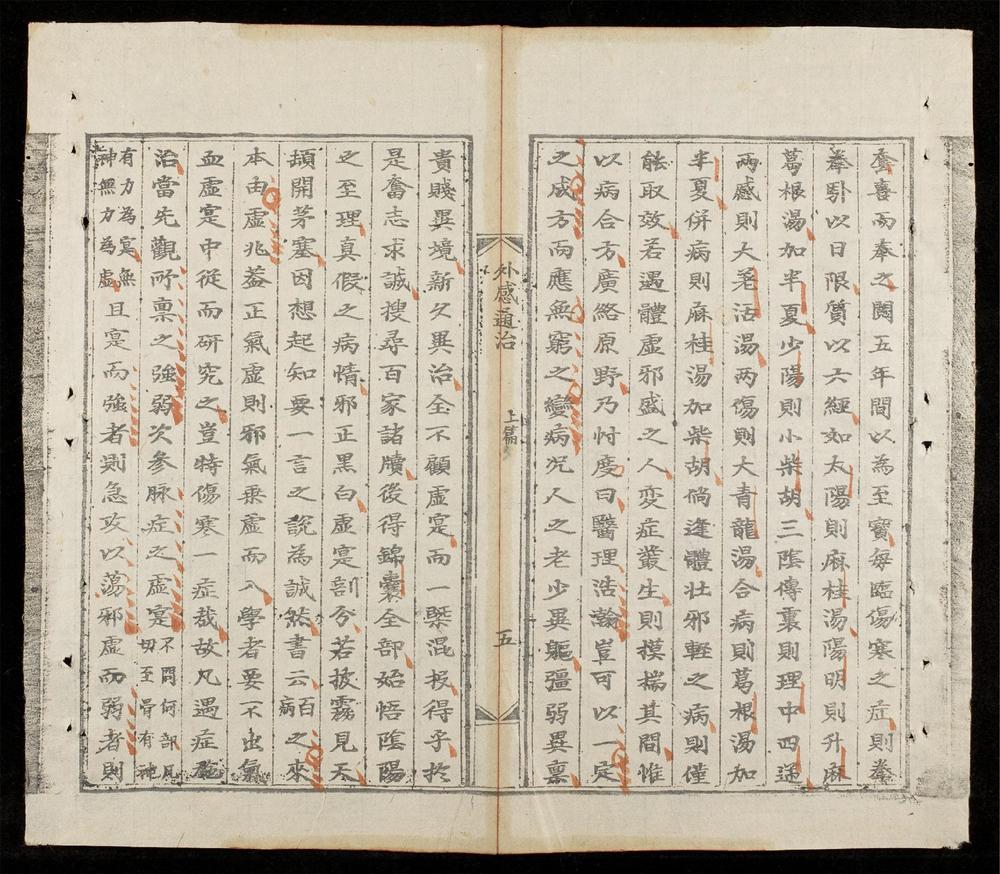 奮喜而奉之閱五年間以為至寶每臨傷寒之症則拳
拳引以日限質以六經如太陽則麻桂湯陽明則升麻
葛根湯加半夏少陽則小柴胡三陰傳裏則理中四逆
兩感則大羌活湯兩傷則大青龍湯合病則葛根湯加
半夏併病則麻桂湯加柴胡倘逢體壯邪輕之病則僅
能取效若遇體虛邪盛之人変症叢生則摸揣其問惟
以病合方廣絡原野乃忖度曰醫理浩瀚豈可以一定
之成方而應無窮之變病况人之老少異軀彊弱異禀
外感通治 上篇 五
貴賤異境新久異治全不顧虛寔而一槩混投得乎於
是奮志求誠搜尋百家諸牘後得錦囊全部始悟陰陽
之至理真假之病情邪正黑白虛寔剖分若披霧見天
頓開茅塞因想起知要一言之說為誠然書云百病之來
本由虛兆蓋正氣虛則邪氣乗虛而入學者要不出氣
血虛寔中従而研究之豈特傷寒一症哉故凡遇症施
治當先觀所禀之強弱次參脉症之虛寔不問何部凡切至骨有神
有力為寔無神無力為虛且寔而強者則急攻以蕩邪虛而弱者則